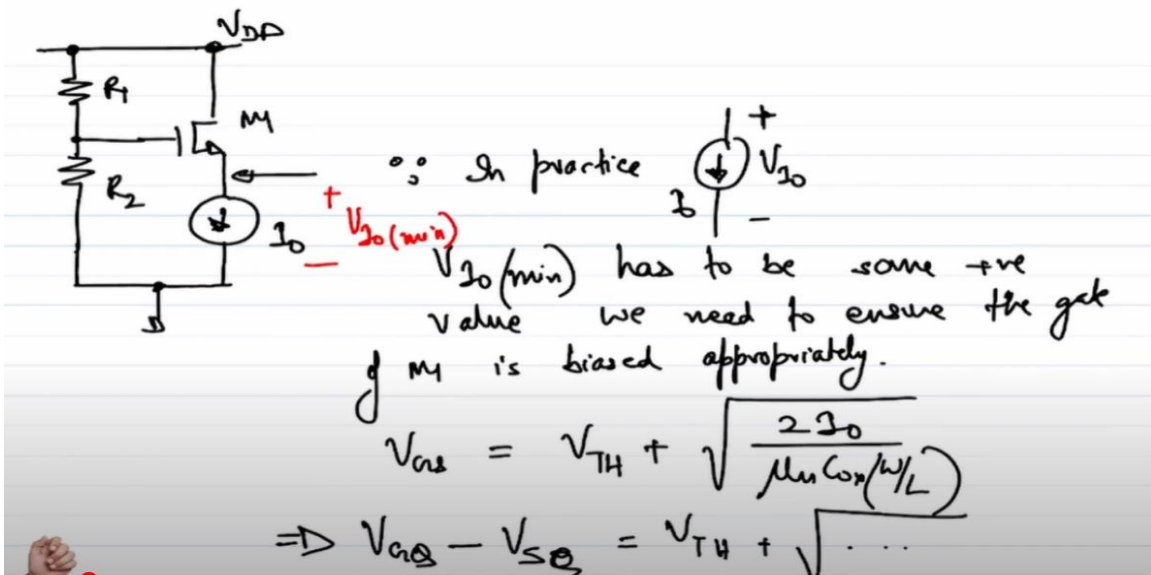 V_DD
R1
M1
R2
I0
+
V_I0(min)
–
∵ In practice
+
V_I0
–
I0
V_I0(min) has to be some +ve
value we need to ensure the gate
of M1 is biased appropriately.
V_GS = V_TH + √(2I0 / μn Cox (W/L))
⇒ V_GQ – V_SQ = V_TH + √....